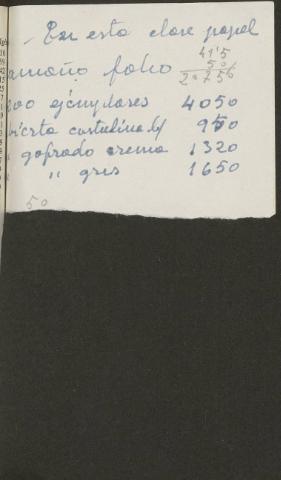 - En esta clase papel
tamaño folio
41'5
50
2.0750
200 ejemplares 4050
cubierta cartulina 950
" gofrado crema 1320
" " gris 1650
50